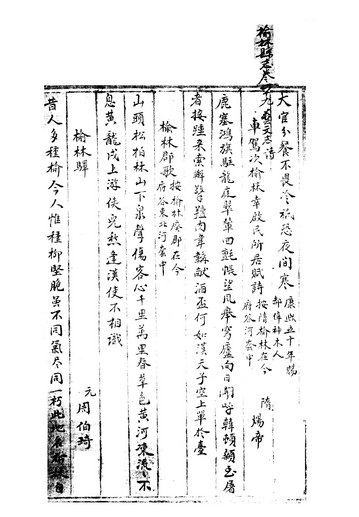 榆林縣志卷 十九 藝文志 詩
大官分餐不畏冷祗恐夜間寒 康熙五十年賜
部倅神木人
車駕次榆林幸啟民所居賦詩 按隋榆林在今
府谷河套中 隋 煬帝
鹿塞鴻旗駐龍庭翠輦回氈帳望風舉穹廬向日開呼韓頓顙至屠
耆接踵來索辮擎羶肉韋韝獻酒盃何如漢天子空上單於臺
榆林郡歌 按榆林廢郡在今
府谷東北河套中
山頭松柏林山下泉聲傷客心千里萬里春草色黃河東流〻不
息黃龍戍上游俠兒愁逢漢使不相識
榆林驛 元 周伯琦
昔人多種榆今人惟種柳堅脆虽不同氣尽同一朽此地名榆林自